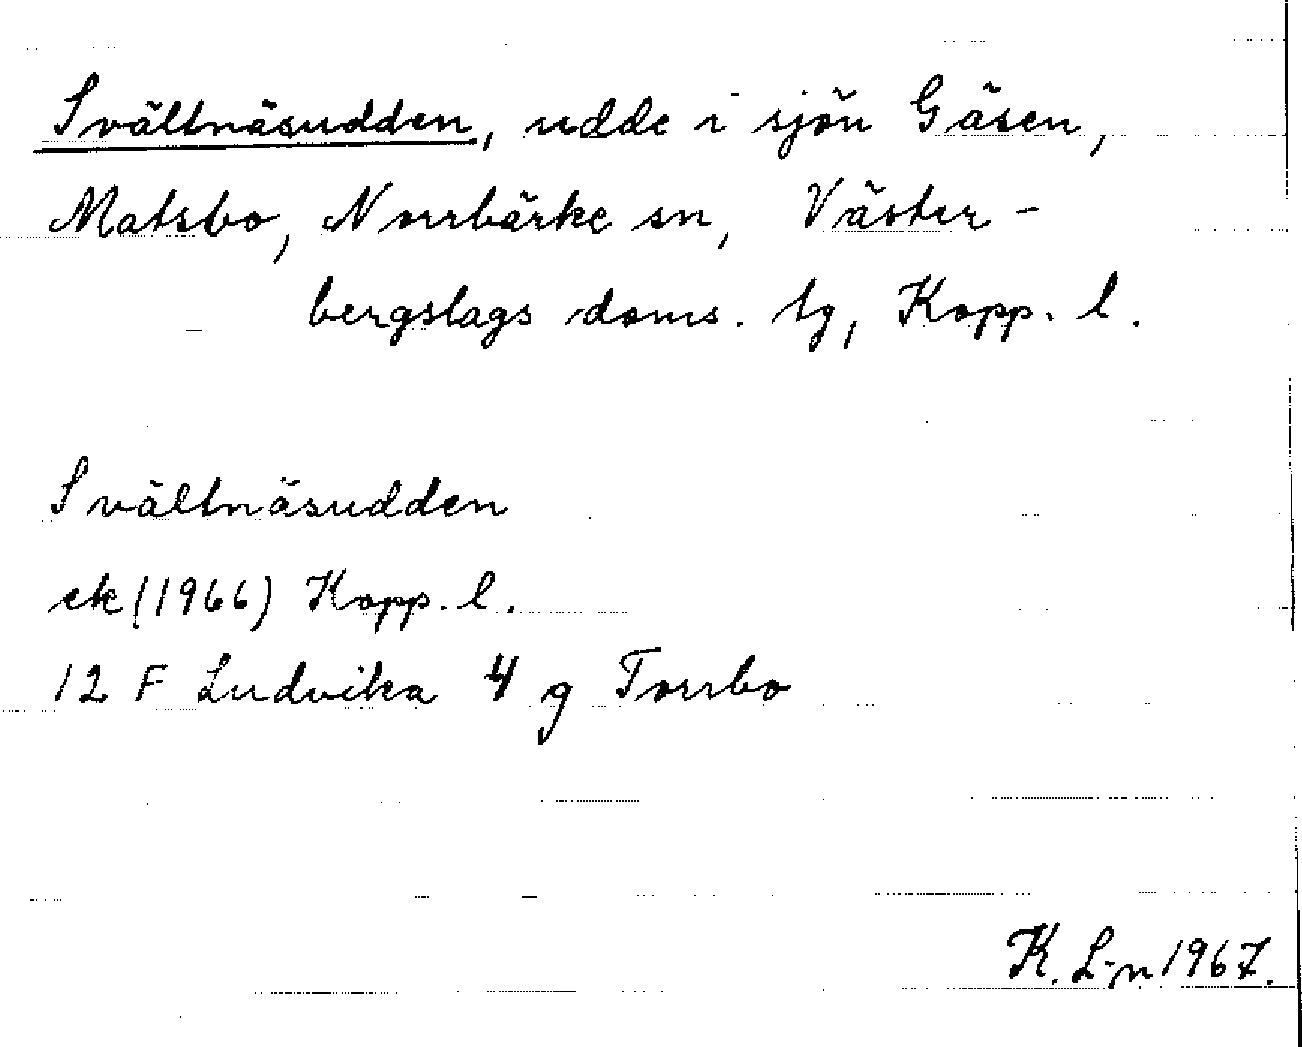 Svältnäsudden, udde i sjön Gäsen,
Matsbo, Norrbärke sn, Väster-
bergslags doms. tg, Kopp. l.
Svältnäsudden
ek (1966) Kopp. l.
12 F Ludvika 4 g Torrbo
K. L-n 1967.